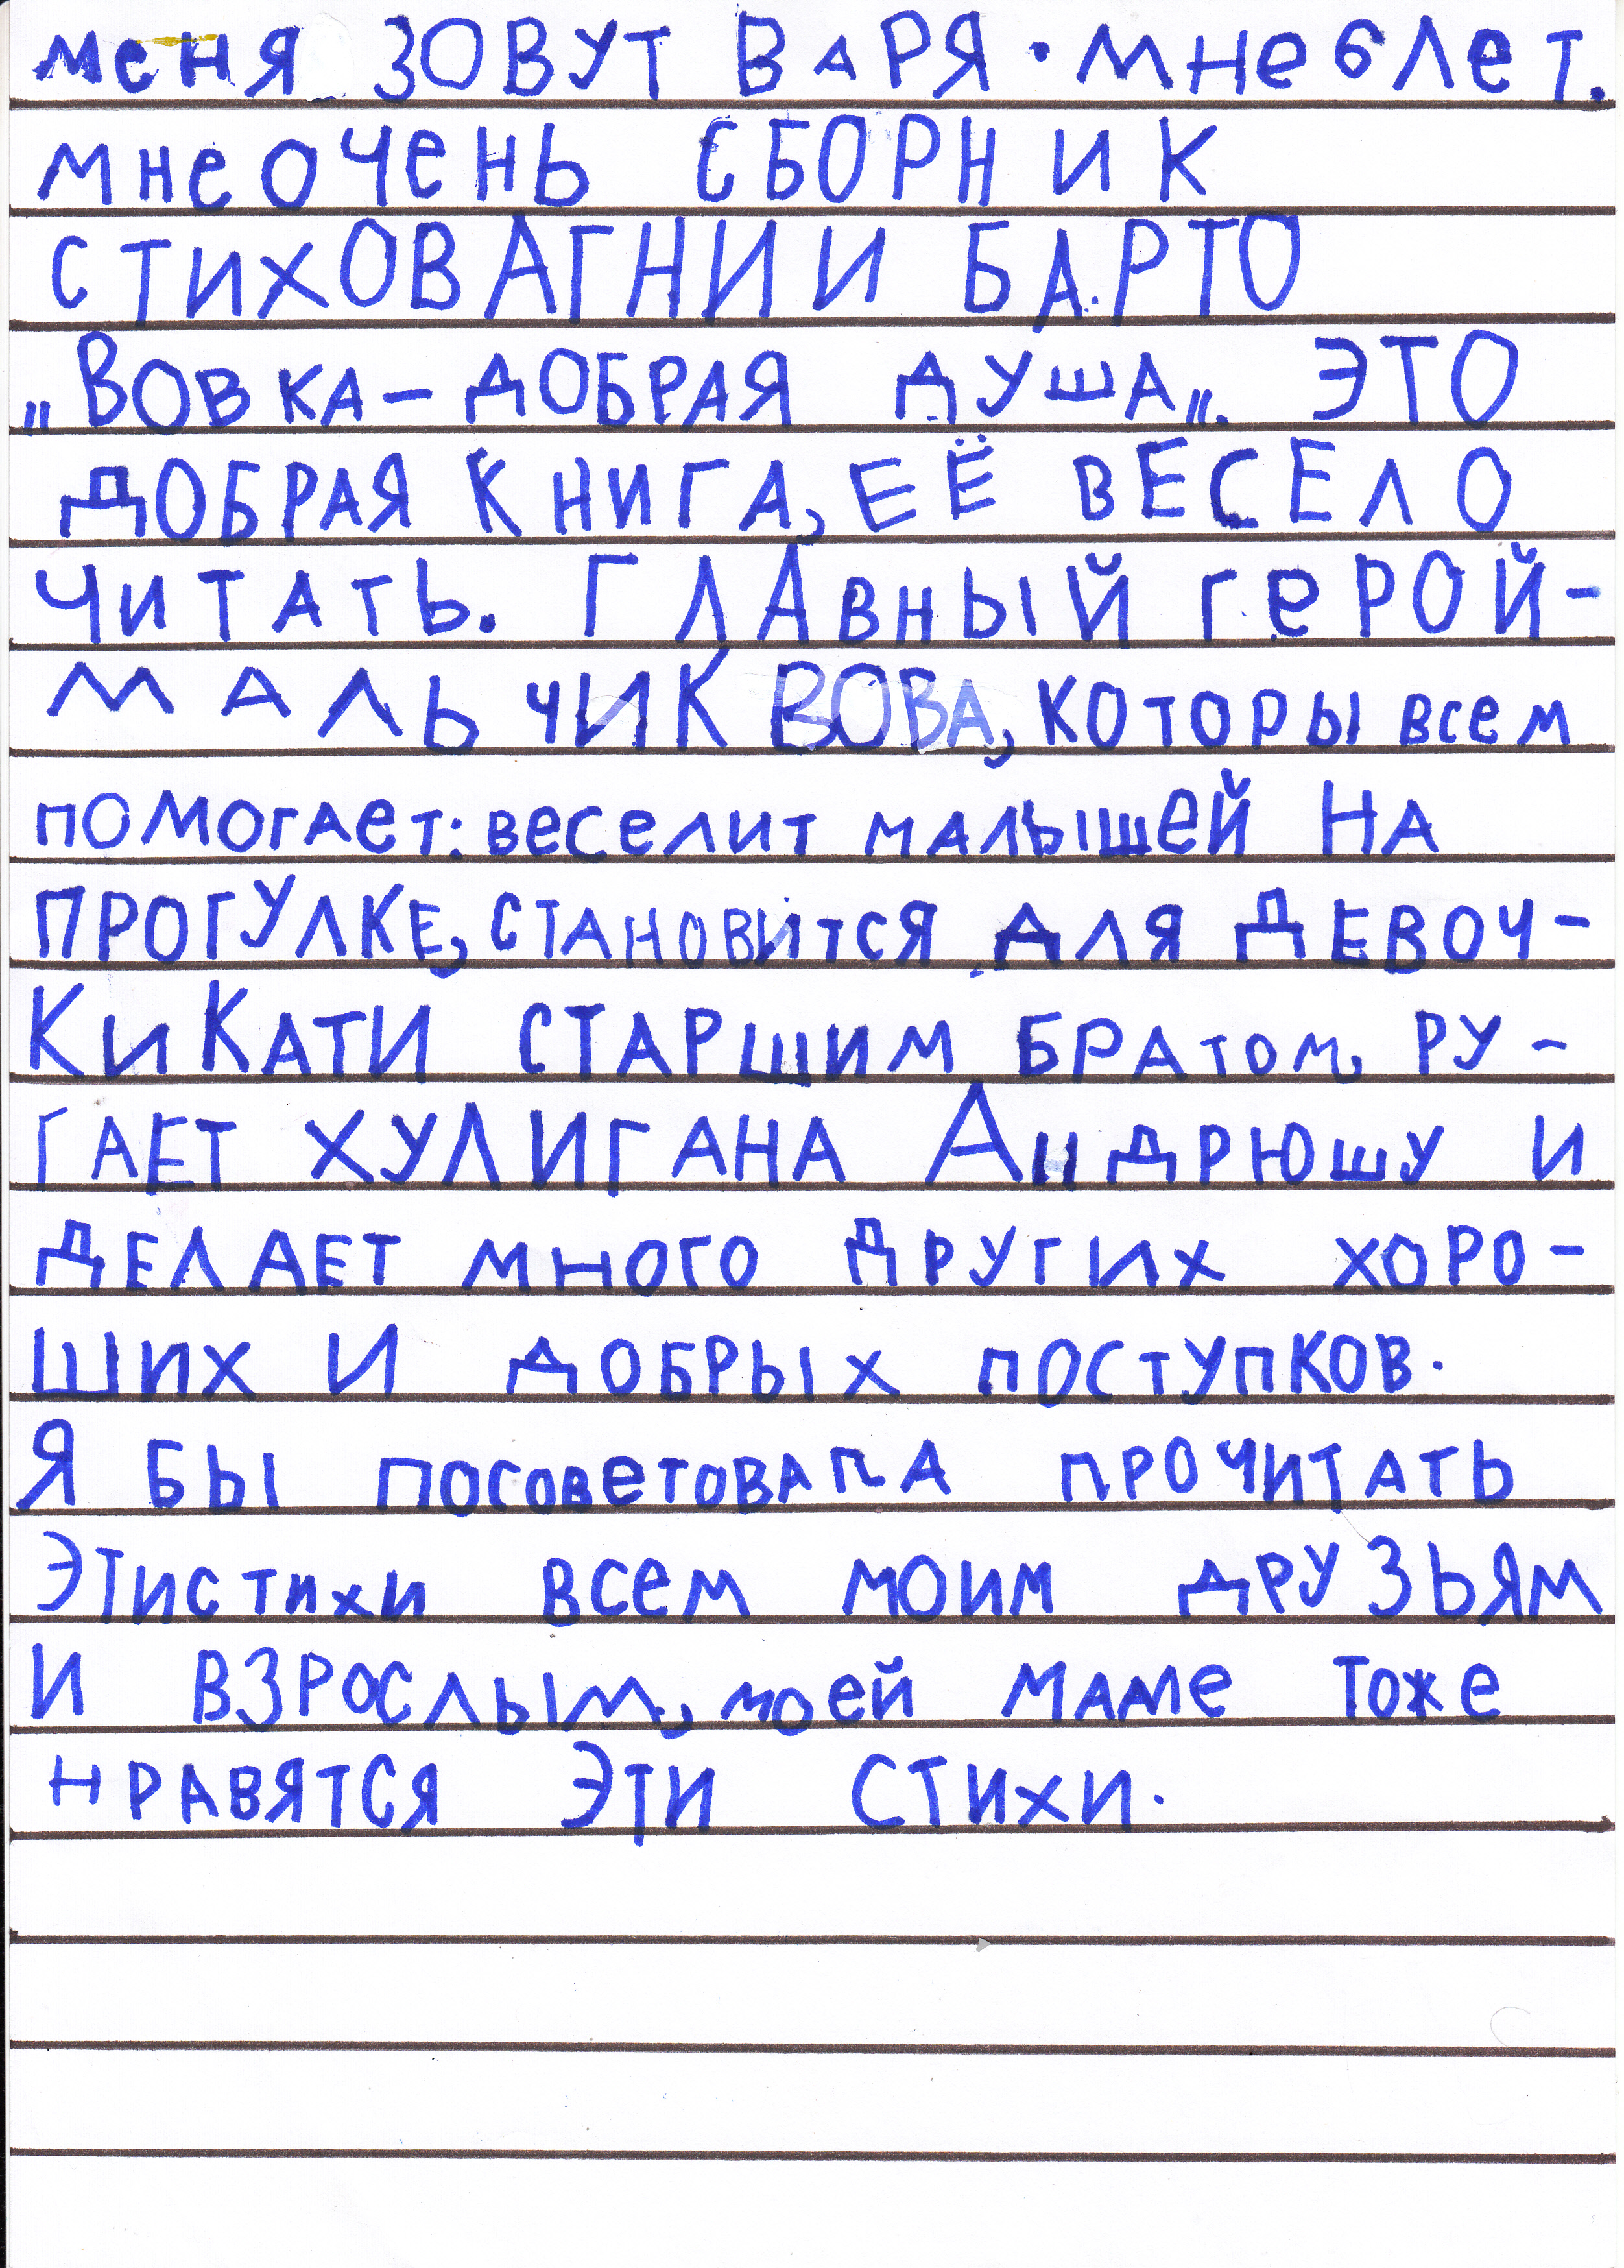 меня ЗОВУТ ВАРЯ. мне 6 лет.
мне очень СБОРНИК
СТИХОВ АГНИИ БАРТО
„ВОВКА - ДОБРАЯ ДУША„. ЭТО
ДОБРАЯ КНИГА, ЕЁ ВЕСЕЛО
ЧИТАТЬ. ГЛАВНЫЙ геРОЙ-
МАЛЬЧИК ВОВА, КОТОРЫ всем
помогает: веселит малышей НА
ПРОГУЛКЕ, СТАНОВИТСЯ ДЛЯ ДЕВОЧ-
КИ КАТИ СТАРШИМ БРАТОМ, РУ-
ГАЕТ ХУЛИГАНА АНДРЮШУ И
ДЕЛАЕТ МНОГО ДРУГИХ ХОРО-
ШИХ И ДОБРЫХ ПОСТУПКОВ.
Я БЫ посоветовапа ПРОЧИТАТЬ
ЭТИ СТИХИ всем МОИМ ДРУЗЬЯМ
И ВЗРОСЛЫМ, моей маме тоже
НРАВЯТСЯ ЭТИ СТИХИ.